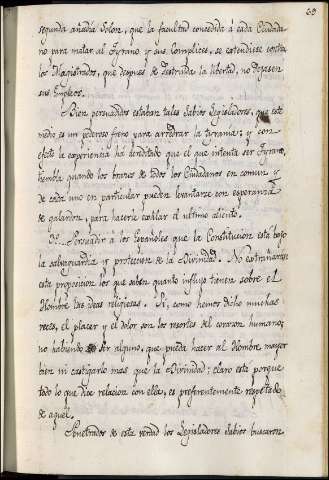 69
segunda añadia Solon, que la facultad concedida á cada Ciudada-
no para matar al Tyrano y sus Complices, se extendiese contra
los Magistrados, que despues de destruida la libertad, no dejasen
sus Empleos.
Bien persuadidos estaban tales Sabios Legisladores, que este
medio es un poderoso freno para arredrar la tyrania; y con
efecto la experiencia ha acreditado que el que intenta ser Tyrano,
tiembla quando los brazos de todos los Ciudadanos en comun y
de cada uno en particular pueden levantarse con esperanza
de galardon, para hacerle exâlar el ultimo aliento.
3o. Persuadir a los Españoles que la Constitucion está bajo
la salvaguardia y proteccion de la Divinidad. No extrañaran
esta proposicion los que saben quanto influjo tienen sobre el
Hombre las ideas religiosas. Si, como hemos dicho muchas
veces, el placer y el dolor son los resortes del corazon humano;
no habiendo ser alguno, que pueda hacer al Hombre mayor
bien ni castigarlo mas que la Divinidad; claro está porque
todo lo que dice relacion con ella, es preferentemente respetado
de aquel.
Penetrados de esta verdad los Legisladores Sabios buscaron